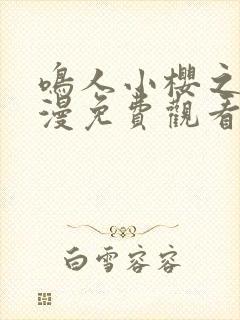 鳴人小櫻之
漫免費觀看
白雪容容